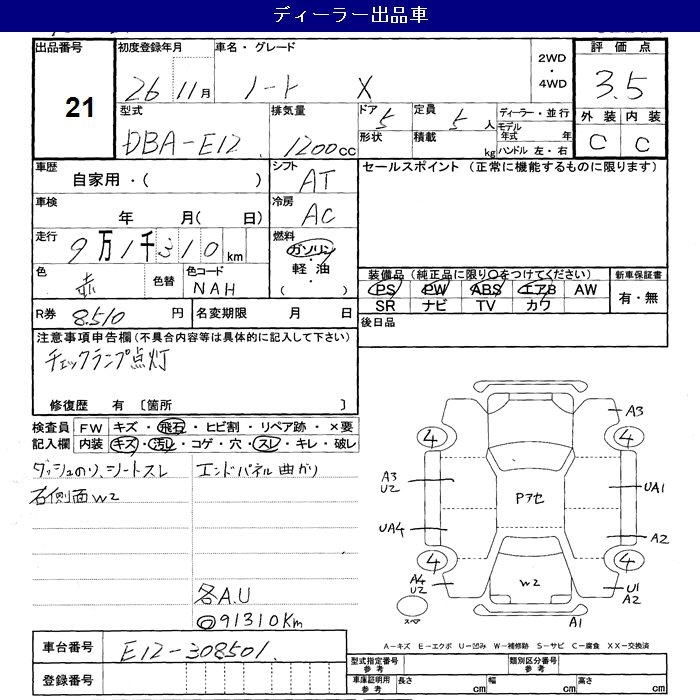 ディーラー出品車
出品番号
21
初度登録年月
26 11月
車名・グレード
ノート X
2WD
・
4WD
評価点
3.5
外装 内装
C C
型式
DBA-E12
排気量
1200cc
ドア 5
形状
定員 5人
積載 kg
ディーラー・並行
モデル年式 年
ハンドル 左・右
車歴
自家用・( )
シフト
AT
セールスポイント (正常に機能するものに限ります)
車検
年 月( 日)
冷房
AC
走行
9万1千310km
燃料
ガソリン
・
軽油
・
( )
色
赤
色替
色コード
NAH
装備品 (純正品に限り〇をつけてください)
PS PW ABS エアB AW
SR ナビ TV カワ
新車保証書
有・無
R券 8510円
名変期限 月 日
後日品
注意事項申告欄 (不具合内容等は具体的に記入して下さい)
チェックランプ点灯
修復歴 有 [箇所 ]
検査員 FW キズ・飛石・ヒビ割・リペア跡・×要
記入欄 内装 キズ・汚レ・コゲ・穴・スレ・キレ・破レ
ダッシュのり、シートスレ
右側面W2
エンドパネル曲がり
各A.U
◎91310Km
A3
4 4
A3
U2
UA1
Pアセ
UA4
A2
4 4
A4
U2
W2
U1
A2
スペア
A1
A-キズ E-エクボ U-凹み W-補修跡 S-サビ C-腐食 XX-交換済
車台番号
E12-308501
登録番号
型式指定番号
参考
類別区分番号
参考
車庫証明用
参考
長さ cm
幅 cm
高さ cm